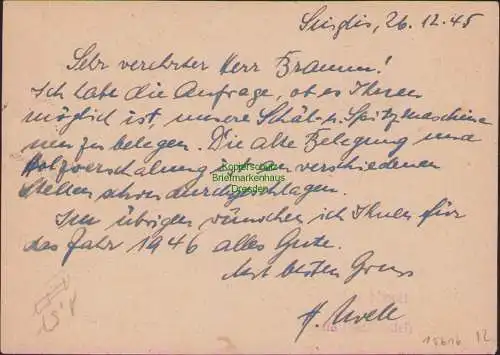 26.12.45
Sehr verehrter Herr Braun!
Ich habe die Anfrage, ob es Ihnen
möglich ist, unsere Schäl- u. Spitzmaschine
neu zu belegen. Die alte Belegung und
Holzverschalung ist an verschiedenen
Stellen schon durchgeschlagen.
Im übrigen wünschen ich Ihnen für
das Jahr 1946 alles Gute.
Mit besten Gruss
Kopierschutz
Briefmarkenhaus
Dresden
15616